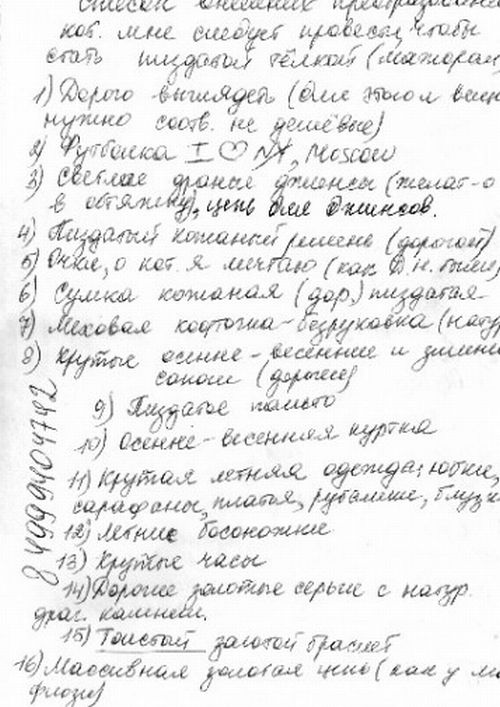 Список внешних преобразовани
кот. мне следует провести, чтобы
стать пиздатой тёлкой (мажоркой
1) Дорого выглядеть (для этого вещи
нужно соотв. не дешёвые)
2) Футболка I ♡ NY, Moscow
3) Светлые драные джинсы (желат-о
в обтяжку), цепь для джинсов.
4) Пиздатый кожаный ремень (дорогой)
5) Очки, о кот. я мечтаю (как
6) Сумка кожаная (дор.) пиздатая
7) Меховая кофточка-безрукавка (нату
8) крутые осенне-весенние и зимни
сапоги (дорогие)
9) Пиздатое пальто
10) осенне-весенняя куртка
11) Крутая летняя одежда: юбки,
сарафаны, платья, рубашки, блузк
12) Летние босоножки
13) Крутые часы
14) Дорогие золотые серьги с натур.
драг. камнем.
15) Толстый золотой браслет
16) Массивная золотая цепь (как у
8 4999404742